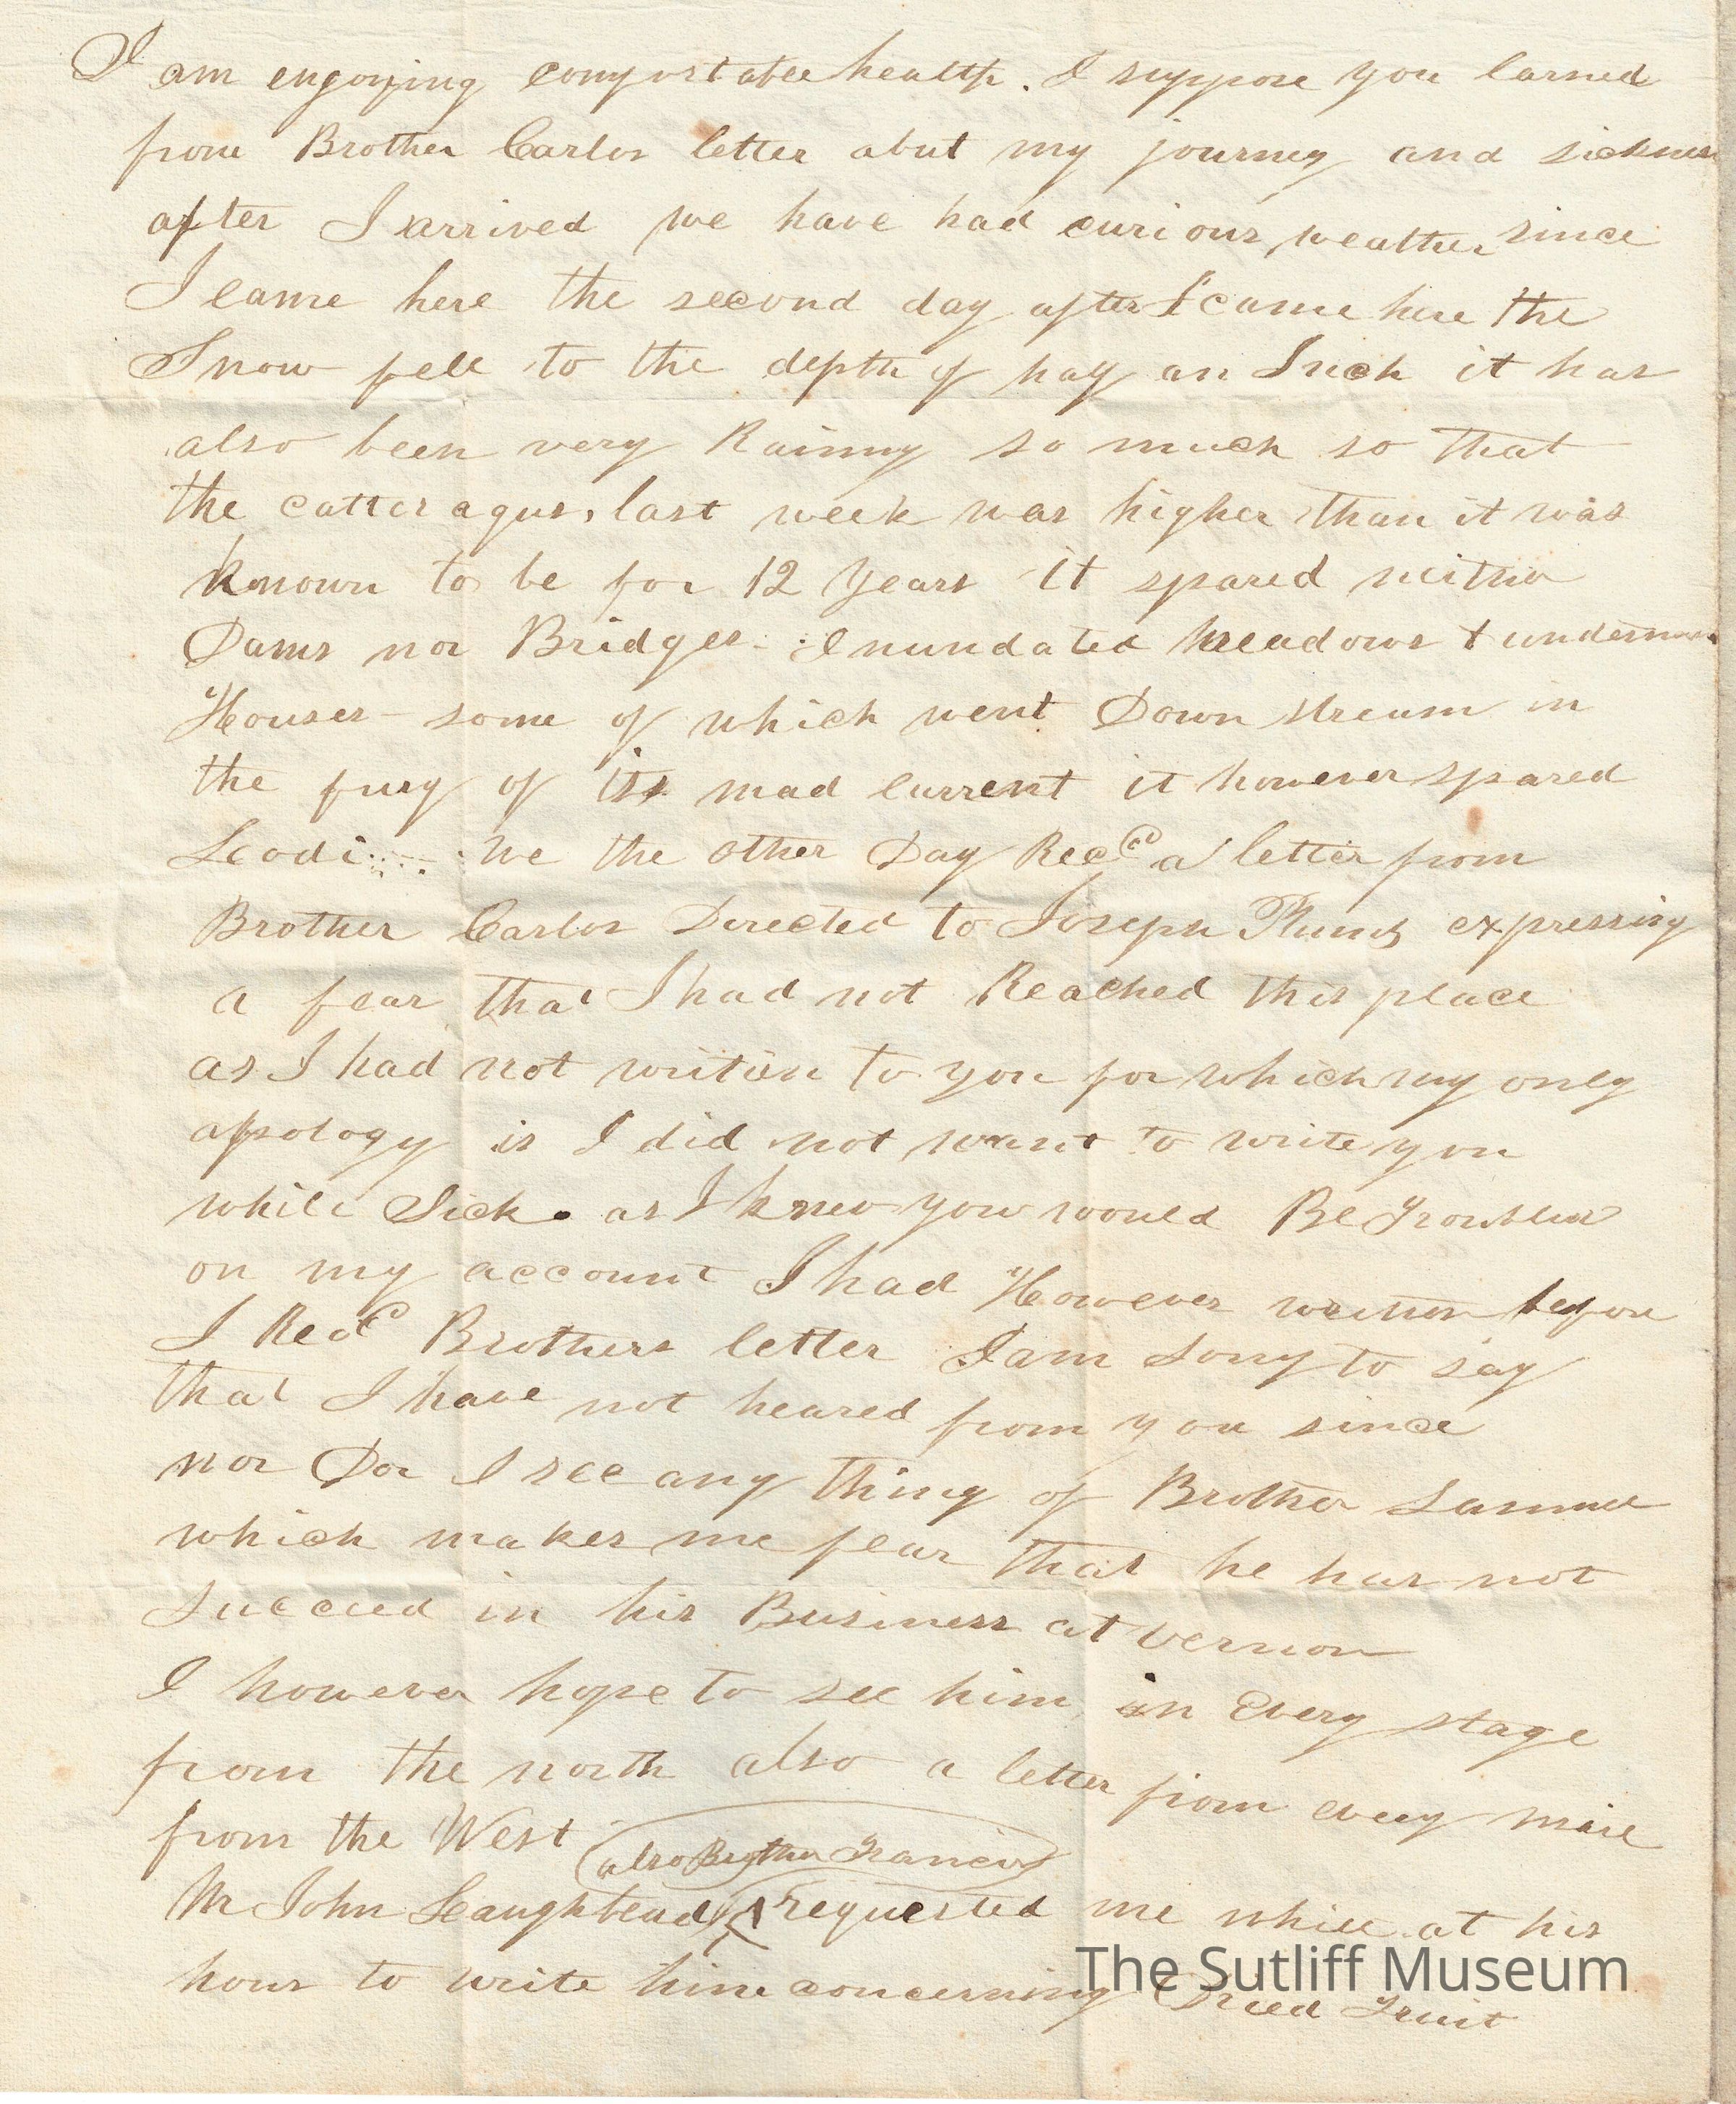 I am engoying comfortabee health. I suppose you larned
from Brother Carlos letter abut my journey and sickness
after I arrived we have had curious weather since
I came here the second day after I came here the
Snow fell to the depth of hay an Inch it has
also been very Rainny so much so that
the catteragus, last week was higher than it was
known to be for 12 Years It spared neither
Dams nor Bridges - Inundated meadows &
Houses - some of which went Down stream in
the fury of its mad current it however spared
Leodi We the other Day Recd a letter from
Brother Carlos Directed to Joseph Plumb expressing
a fear that I had not Reached this place
as I had not writen to you for which my only
apology is I did not want to write you
while Sick. as I knew you would Be Troubled
on my account I had However written before
I Recd Brothers letter I am sorry to say
that I have not heared from you since
nor Do I see any thing of Brother Samuel
which makes me fear that he has not
Succeed in his Business at Vernon
I however hope to see him in Every stage
from the north also a letter from every mail
from the West
also Brother Francis
Mr John Laughhead requested me while at his
hous to write him concerning Dried Fruit
The Sutliff Museum